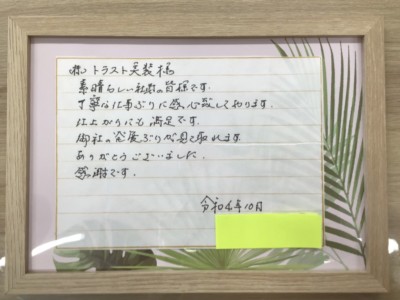 ㈱トラスト美装様
素晴らしい社員の皆様です。
丁寧な仕事ぶりに感心致しております。
仕上がりにも満足です。
御社の発展ぶりが見て取れます。
ありがとうございました。
感謝です。
令和4年10月